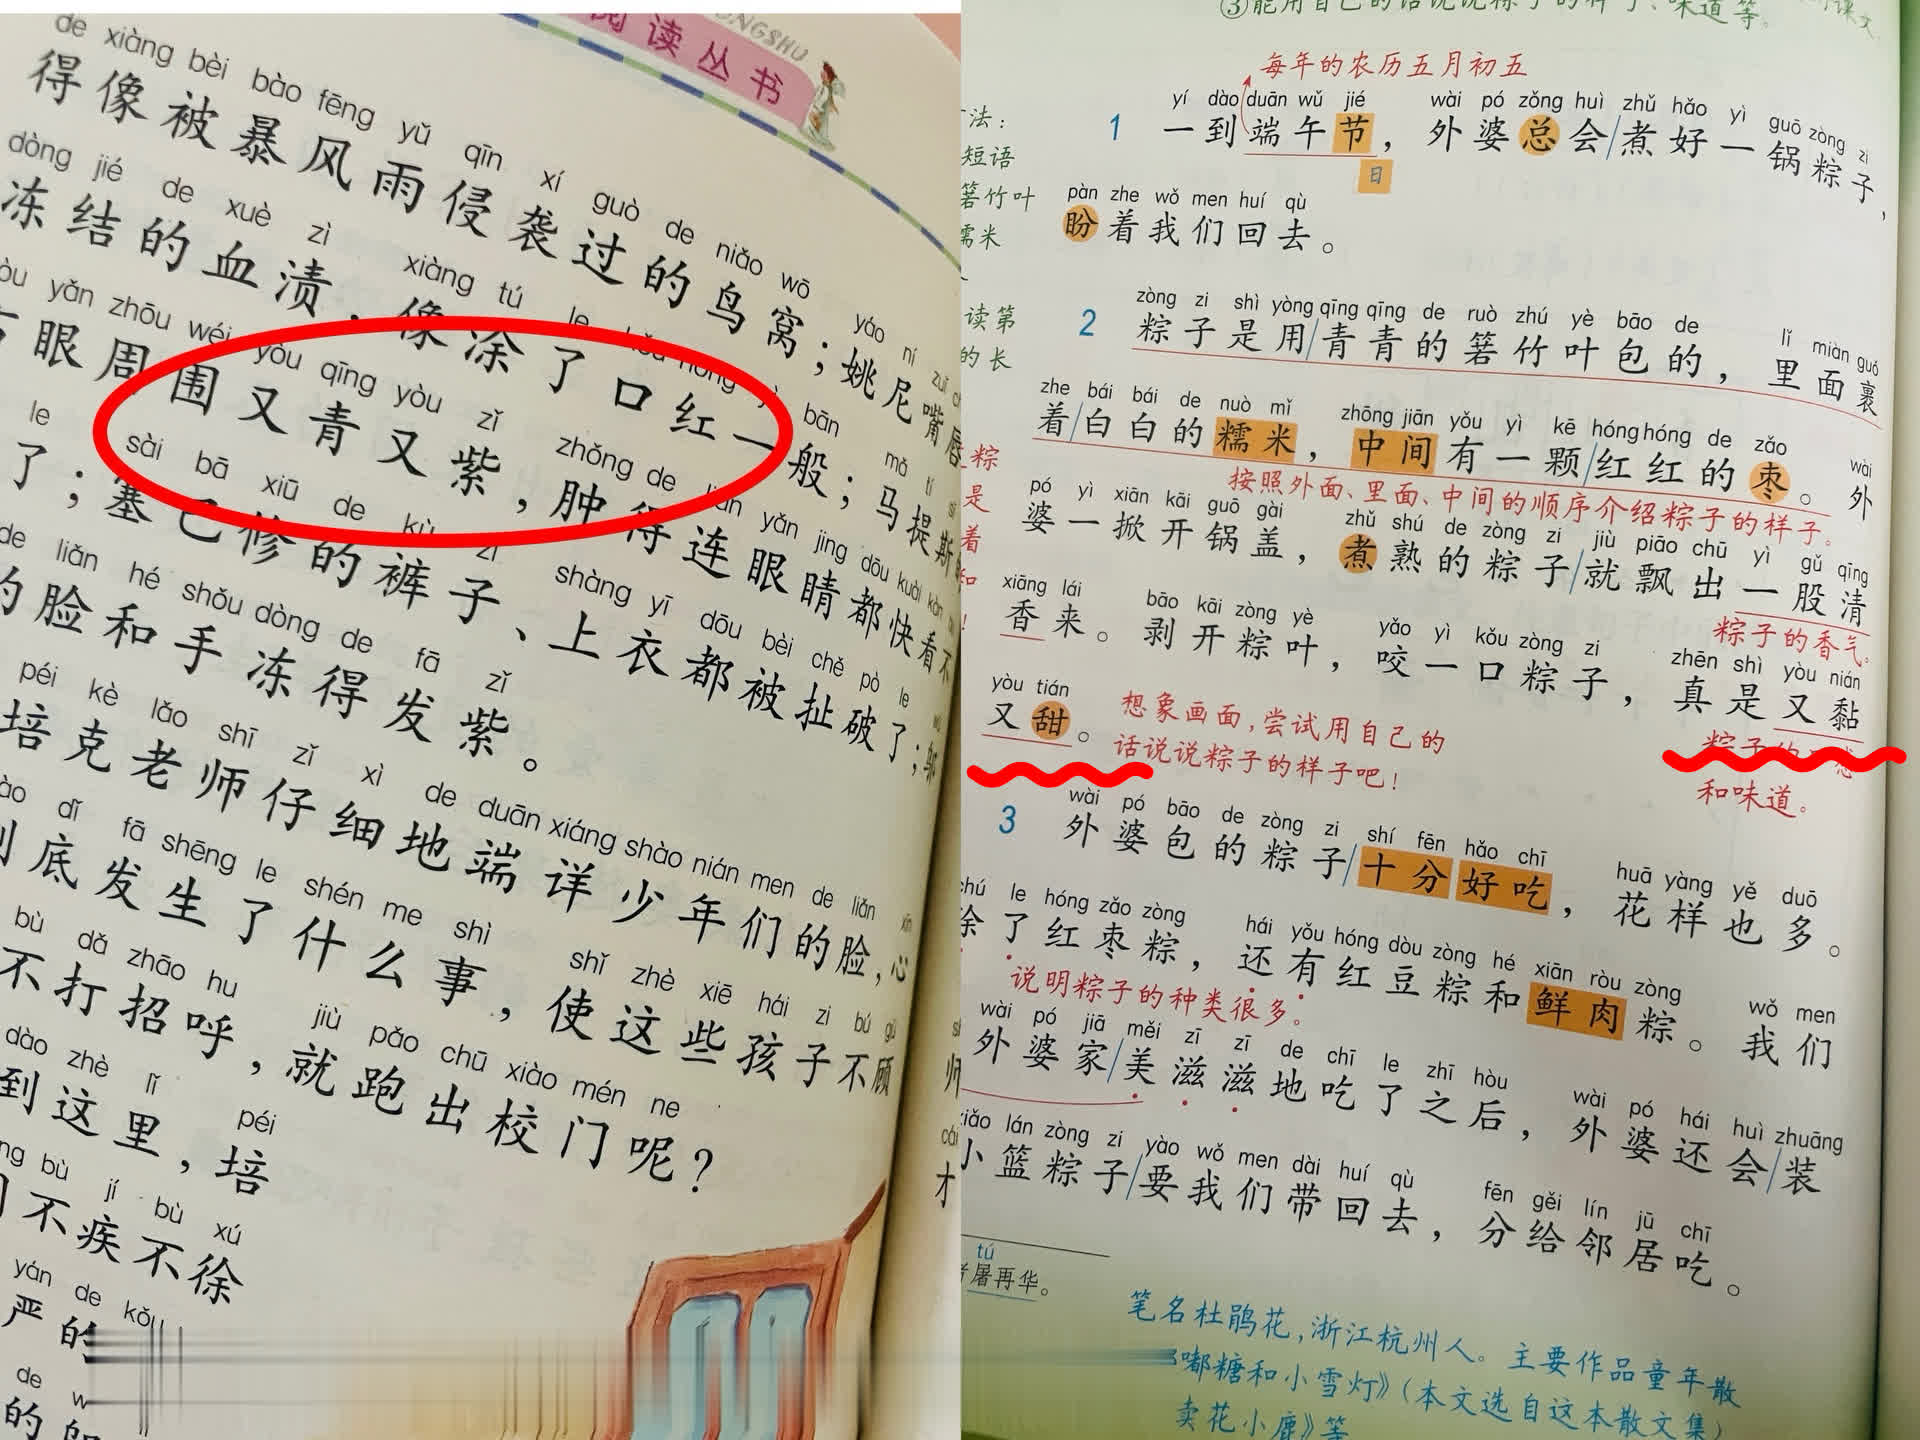 阅读丛书
ONGSHU
de xiàng bèi bào fēng yǔ qīn xí guò de niǎo wō yáo ní zuǐ
得像被暴风雨侵袭过的鸟窝；姚尼嘴唇
dòng jié de xuè zì xiàng tú le hóng bān mǎ tí
冻结的血渍，像涂了口红一般；马提斯
yǎn zhōu wéi yòu qīng yòu zǐ zhǒng de yǎn jing dōu kuài kàn
眼周围又青又紫，肿得连眼睛都快看不
le sài bā xiū de kù zi shàng yī dōu bèi chě pò le
了；塞巴修的裤子、上衣都被扯破了；邬
de liǎn hé shǒu dòng de fā zǐ
的脸和手冻得发紫。
péi kè lǎo shī zǐ xì de duān xiáng shào nián men de liǎn xīn
培克老师仔细地端详少年们的脸，心
dǐ fā shēng le shén me shì shǐ zhè xiē hái zi bú gù
到底发生了什么事，使这些孩子不顾
bù dǎ zhāo hu jiù pǎo chū xiào mén ne
不打招呼，就跑出校门呢？
dào zhè lǐ péi
到这里，培
bù jí bù xú
不疾不徐
yán de kǒu
严的
de
的
师
才
③能用自己的话说说粽子的样子、味道等。
课文
每年的农历五月初五
yí dào duān wǔ jié wài pó zǒng huì zhǔ hǎo yì guō zòng zi
1 一到端午节，外婆总会煮好一锅粽子，
日
pàn zhe wǒ men huí qù
盼着我们回去。
法：
短语
箬竹叶
糯米
读第
的长
zòng zi shì yòng qīng qīng de ruò zhú yè bāo de lǐ miàn guǒ
2 粽子是用青青的箬竹叶包的，里面裹
zhe bái bái de nuò mǐ zhōng jiān yǒu yì kē hóng hóng de zǎo wài
着白白的糯米，中间有一颗红红的枣。外
按照外面、里面、中间的顺序介绍粽子的样子。
粽
是
着
和
！
pó yì xiān kāi guō gài zhǔ shú de zòng zi jiù piāo chū yì gǔ qīng
婆一掀开锅盖，煮熟的粽子就飘出一股清
粽子的香气。
xiāng lái bāo kāi zòng yè yǎo yì kǒu zòng zi zhēn shì yòu nián
香来。剥开粽叶，咬一口粽子，真是又黏
yòu tián
又甜。
想象画面，尝试用自己的
话说说粽子的样子吧！
粽子的
和味道。
wài pó bāo de zòng zi shí fēn hǎo chī huā yàng yě duō
3 外婆包的粽子十分好吃，花样也多。
chú le hóng zǎo zòng hái yǒu hóng dòu zòng hé xiān ròu zòng wǒ men
除了红枣粽，还有红豆粽和鲜肉粽。我们
说明粽子的种类很多。
wài pó jiā měi zī zī de chī le zhī hòu wài pó hái huì zhuāng
外婆家美滋滋地吃了之后，外婆还会装
xiǎo lán zòng zi yào wǒ men dài huí qù fēn gěi lín jū chī
小篮粽子要我们带回去，分给邻居吃。
tú
屠再华。
笔名杜鹃花，浙江杭州人。主要作品童年散
嘟糖和小雪灯》（本文选自这本散文集）
卖花小鹿》等